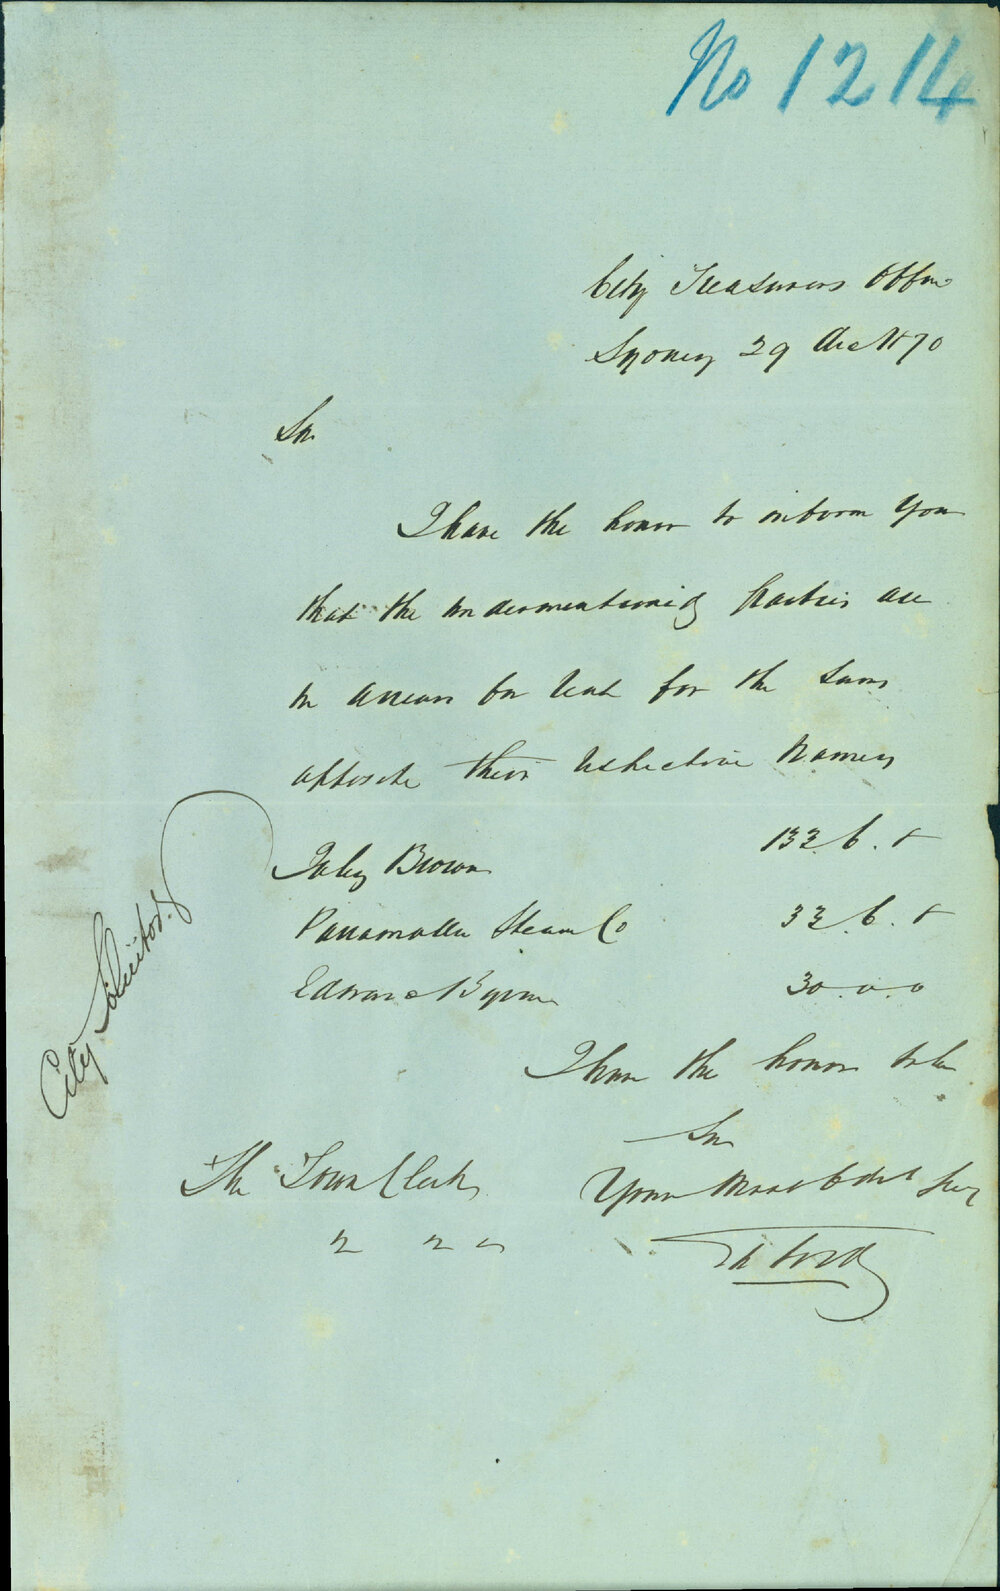 No 1214
City Treasurers Office
Sydney 29 Dec 1870
Sir
I have the honor to inform you
that the undermentioned parties are
in arrear for rent for the sums
opposite their respective names
Brown 133.6.8
Parramatta Steam Co 33.6.8
Edward Byrne 30.0.0
I have the honor to be
Sir
The Town Clerk
Your most obdt
City Solicitor